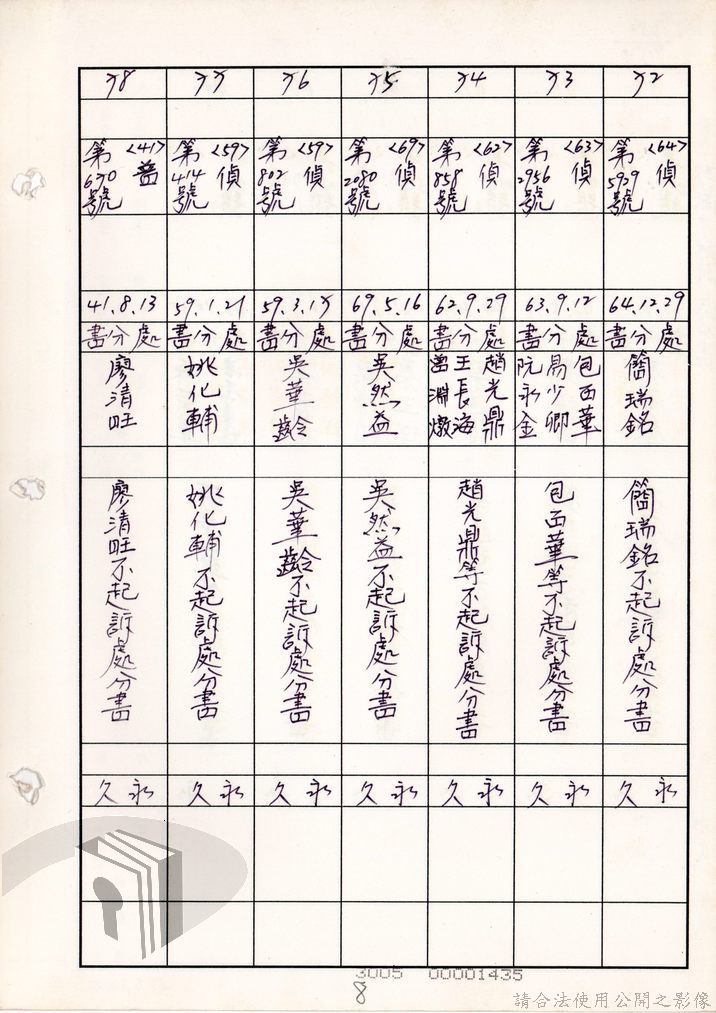 72
<64>偵
第5929號
64.12.29
處分書
簡瑞銘
簡瑞銘不起訴處分書
永久
73
<63>偵
第2956號
63.9.12
處分書
包西華
易少卿
阮永金
包西華等不起訴處分書
永久
74
<62>偵
第858號
62.9.29
處分書
趙光鼎
王長海
曾淵燉
趙光鼎等不起訴處分書
永久
75
<69>偵
第2080號
69.5.16
處分書
吳然益
吳然益不起訴處分書
永久
76
<59>偵
第802號
59.3.17
處分書
吳華齡
吳華齡不起訴處分書
永久
77
<59>偵
第414號
59.1.21
處分書
姚化輔
姚化輔不起訴處分書
永久
78
<41>
第670號
41.8.13
處分書
廖清旺
廖清旺不起訴處分書
永久
3005 00001435
8
請合法使用公開之影像